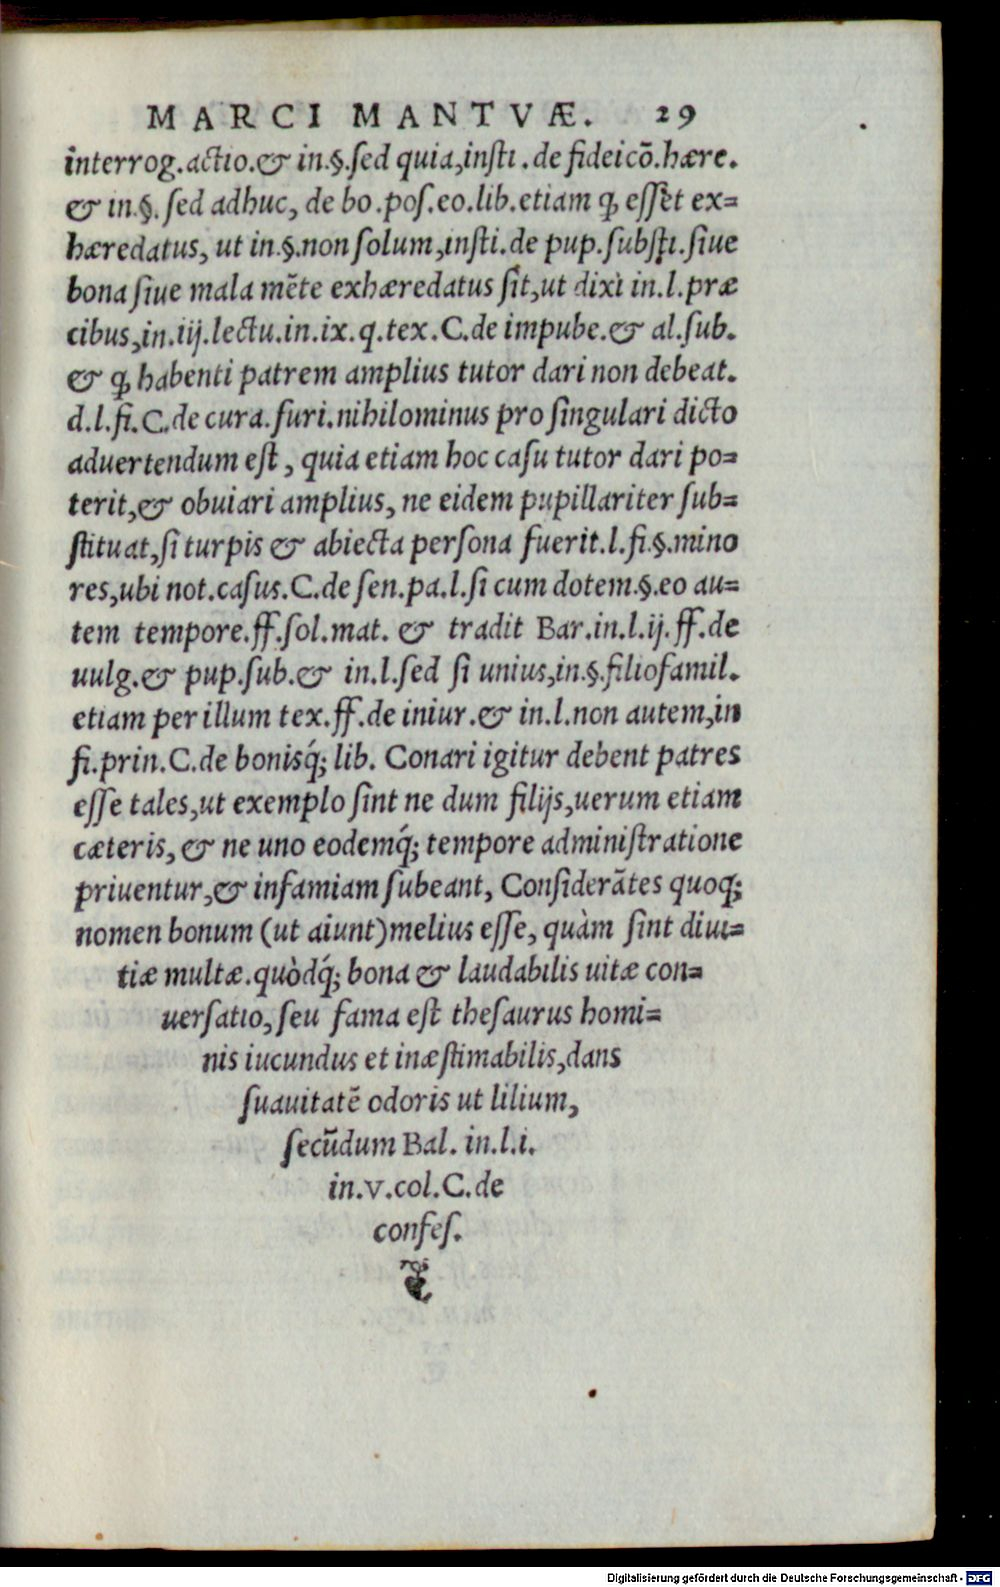 MARCI MANTVÆ. 29
interrog.actio.& in.§.sed quia,insti.de fideicõ.hære.
& in.§. sed adhuc, de bo.pos.eo.lib.etiam ꝙ esset ex=
hæredatus, ut in.§.non solum,insti.de pup.substi.siue
bona siue mala mẽte exhæredatus sit,ut dixi in.l.præ
cibus,in.iij.lectu.in.ix.q.tex.C.de impube.& al.sub.
& ꝙ habenti patrem amplius tutor dari non debeat.
d.l.fi.C.de cura.furi.nihilominus pro singulari dicto
aduertendum est, quia etiam hoc casu tutor dari po=
terit,& obuiari amplius, ne eidem pupillariter sub=
stituat,si turpis & abiecta persona fuerit.l.fi.§.mino
res,ubi not.casus.C.de sen.pa.l.si cum dotem.§.eo au=
tem tempore.ff.sol.mat. & tradit Bar.in.l.ij.ff.de
uulg.& pup.sub.& in.l.sed si unius,in.§.filiofamil.
etiam per illum tex.ff.de iniur.& in.l.non autem,in
fi.prin.C.de bonisq́; lib. Conari igitur debent patres
esse tales,ut exemplo sint ne dum filijs,uerum etiam
cæteris, & ne uno eodemq́; tempore administratione
priuentur,& infamiam subeant, Considerãtes quoq;
nomen bonum (ut aiunt)melius esse, quàm sint diui=
tiæ multæ.quòdq́; bona & laudabilis uitæ con=
uersatio, seu fama est thesaurus homi=
nis iucundus et inæstimabilis,dans
suauitatẽ odoris ut lilium,
secũdum Bal. in.l.i.
in.v.col.C.de
confes.
Digitalisierung gefördert durch die Deutsche Forschungsgemeinschaft - DFG